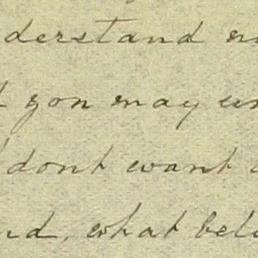 derstand
you may
dont want
nd, what bel